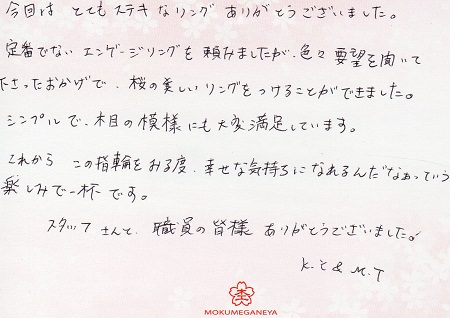 今回は とてもステキなリング ありがとうございました。
定番でない エンゲージリングを 頼みましたが、色々 要望を聞いて
下さったおかげで、桜の美しいリングを つけることができました。
シンプルで、木目の模様にも 大変満足しています。
これから この指輪をみる度、幸せな気持ちに なれるんだなぁっていう
楽しみで一杯です。
スタッフ さんと、職員の皆様 ありがとうございました。
K.Y & M.T
MOKUMEGANEYA